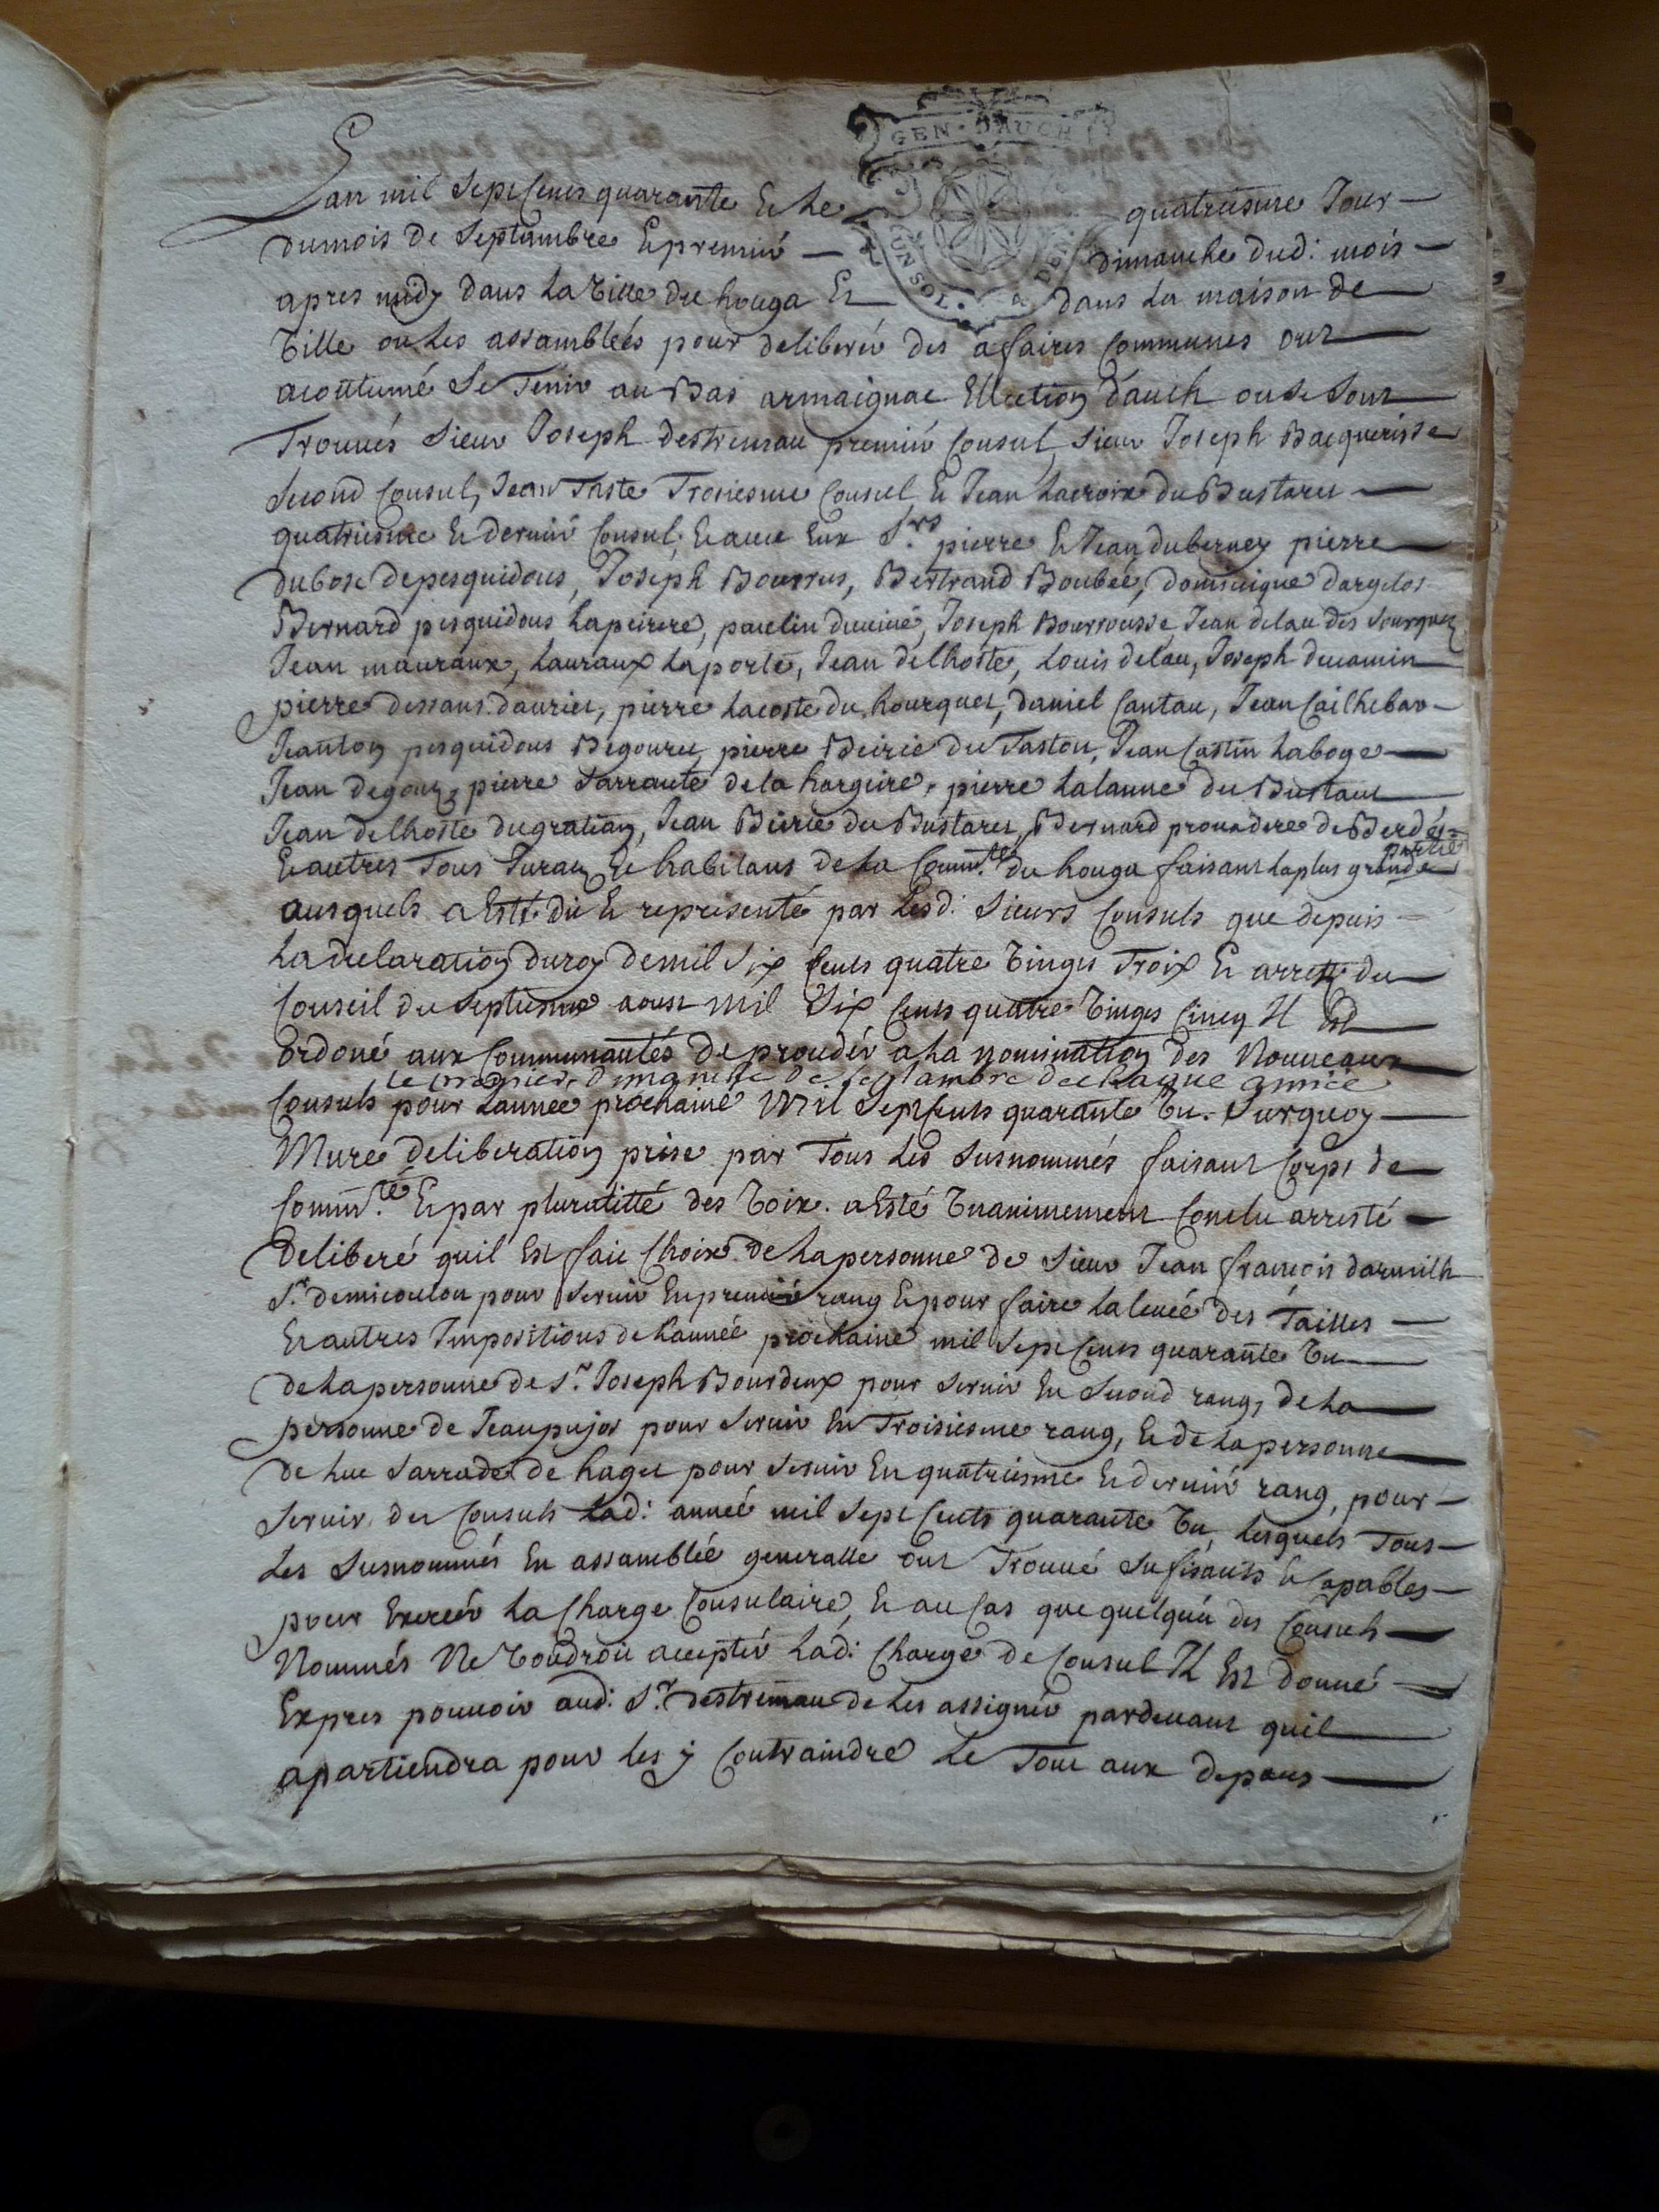 GEN. D'AUCH
UN SOL.
Lan mil sept cens quarante Et Le quatriesme Jour
du mois de Septambre Et premier dimanche dud: mois
apres midy dans La Ville du houga Et dans La maison de
Ville ou Les assamblées pour deliberér des afaires Communes ont
acoutumé Se Tenir au Bas armaignac Ellection dauch ou se sont
Trouués Sieur Joseph destremau premiér Consul, Sieur Joseph Bacquerisse
Second Consul, Jean Taste Troisiesme Consul Et Jean Lacroix du Bustaret
quatriesme Et derniér Consul; Et auec Eux Srs pierre Et Jean duberney pierre
dubosc depesquidous, Joseph Bourrus, Bertrand Boubée, dominique dargelos
Bernard pesquidous Lapeirere, paulin , Joseph Bourrousse Jean delau des
Jean mauraux, Lauraux Laporte, Jean delhoste, Louis delau, Joseph ducamin
pierre dessans dauriet, pierre Lacoste du hourquet, daniel Cantau, Jean Cailhebar
Jeanton pesquidous Begouret, pierre Beirie du Taston, Jean Castin Laboge
Jean degouz, pierre Sarraute de la hargeire, pierre Lalanne du Bustaret
Jean delhoste dugratian, Jean Beirie du Bustaret, Bernard prouadere de
Et autres Tous Juraz Et habitans de La Commté du houga faisant La plus grande partie
ausquels a Esté dit Et representé par Lesd: Sieurs Consuls que depuis
La declaration du roy demil Six cens quatre Vingts Troix Et arrest du
Conseil du Septiesme aoust mil Six Cens quatre Vingts Cincq Il Est
ordoné aux Communautés de prouder a La nomination des Nouueaux
le premier dimanche de septambre de chaque année
Consuls pour Lannee prochaine Mil Sept Cens quarante Vn. Surquoy
Mure deliberation prise par Tous Les Susnommés faisant Corps de
Commté Et par pluralitté des Voix. a Esté Vnanimement Conclu arresté
deliberé quil Est fait Choix de La personne de Sieur Jean françois darmilh
Sr demicoulou pour Seruir En premié rang Et pour faire La leuée des Tailles
Et autres Impositions de Lannée prochaine mil Sept Cens quarante Vn
de La personne de Sr Joseph Bourdeux pour Seruir En Second rang, de La
personne de Jean pujos pour Seruir En Troisiesme rang, Et de La personne
de Luc Sarrade de haget pour Seruir En quatriesme Et derniér rang, pour
Seruir de Consuls Lad: année mil Sept Cents quarante Vn, Lesquels Tous
Les Susnommés En assamblée generalle ont Trouué Sufisants Et Capables
pour Exercér La Charge Consulaire, Et au Cas que quelquún des Consuls
Nommés Ne Voudroit acceptér Lad: Charge de Consul Il Est donné
Expres pouuoir aud: Sr destremau de Les assignér pardeuant quil
apartiendra pour Les y Contraindre Le Tout aux depans